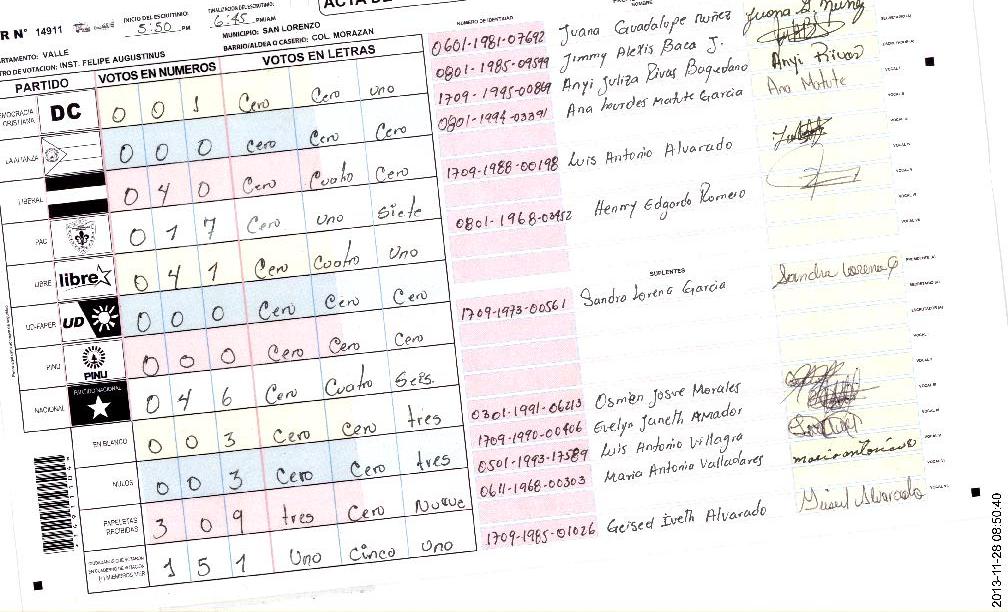 ACTA DE
MER N° 14911
INICIO DEL ESCRUTINIO: 5:50 PM
FINALIZACION DEL ESCRUTINIO: 6:45 PM/AM
DEPARTAMENTO: VALLE
MUNICIPIO: SAN LORENZO
CENTRO DE VOTACION: INST. FELIPE AUGUSTINUS
BARRIO/ALDEA O CASERIO: COL. MORAZAN
PARTIDO VOTOS EN NUMEROS VOTOS EN LETRAS
DEMOCRACIA CRISTIANA DC 0 0 1 Cero Cero uno
LA ALIANZA 0 0 0 Cero Cero Cero
LIBERAL 0 4 0 Cero Cuatro Cero
PAC 0 1 7 Cero uno Siete
LIBRE libre 0 4 1 Cero Cuatro Uno
UD-FAPER UD 0 0 0 Cero Cero Cero
PINU PINU 0 0 0 Cero Cero Cero
NACIONAL PARTIDO NACIONAL 0 4 6 Cero Cuatro Seis.
EN BLANCO 0 0 3 Cero Cero tres
NULOS 0 0 3 Cero Cero tres
PAPELETAS RECIBIDAS 3 0 9 tres Cero Nueve
1 5 1 Uno Cinco Uno
NUMERO DE IDENTIDAD NOMBRE
0601-1981-07692 Juana Guadalupe Nuñez Juana G. Nuñez
0801-1985-09599 Jimmy Alexis Baca J.
1709-1995-00869 Anyi Juliza Rivas Bogedano Anyi Rivas
0801-1994-03391 Ana Lourdes Matute Garcia Ana Matute
1709-1988-00198 Luis Antonio Alvarado
0801-1968-03452 Henrry Edgardo Romero
SUPLENTES
1709-1973-00561 Sandra Lorena Garcia Sandra Lorena G
0301-1991-06213 Osmen Josue Morales
1709-1990-00406 Evelyn Janeth Amador
0501-1993-17589 Luis Antonio Villagra
0611-1968-00303 Maria Antonia Valladares
1709-1985-01026 Geised Iveth Alvarado
2013-11-28 08:50:40